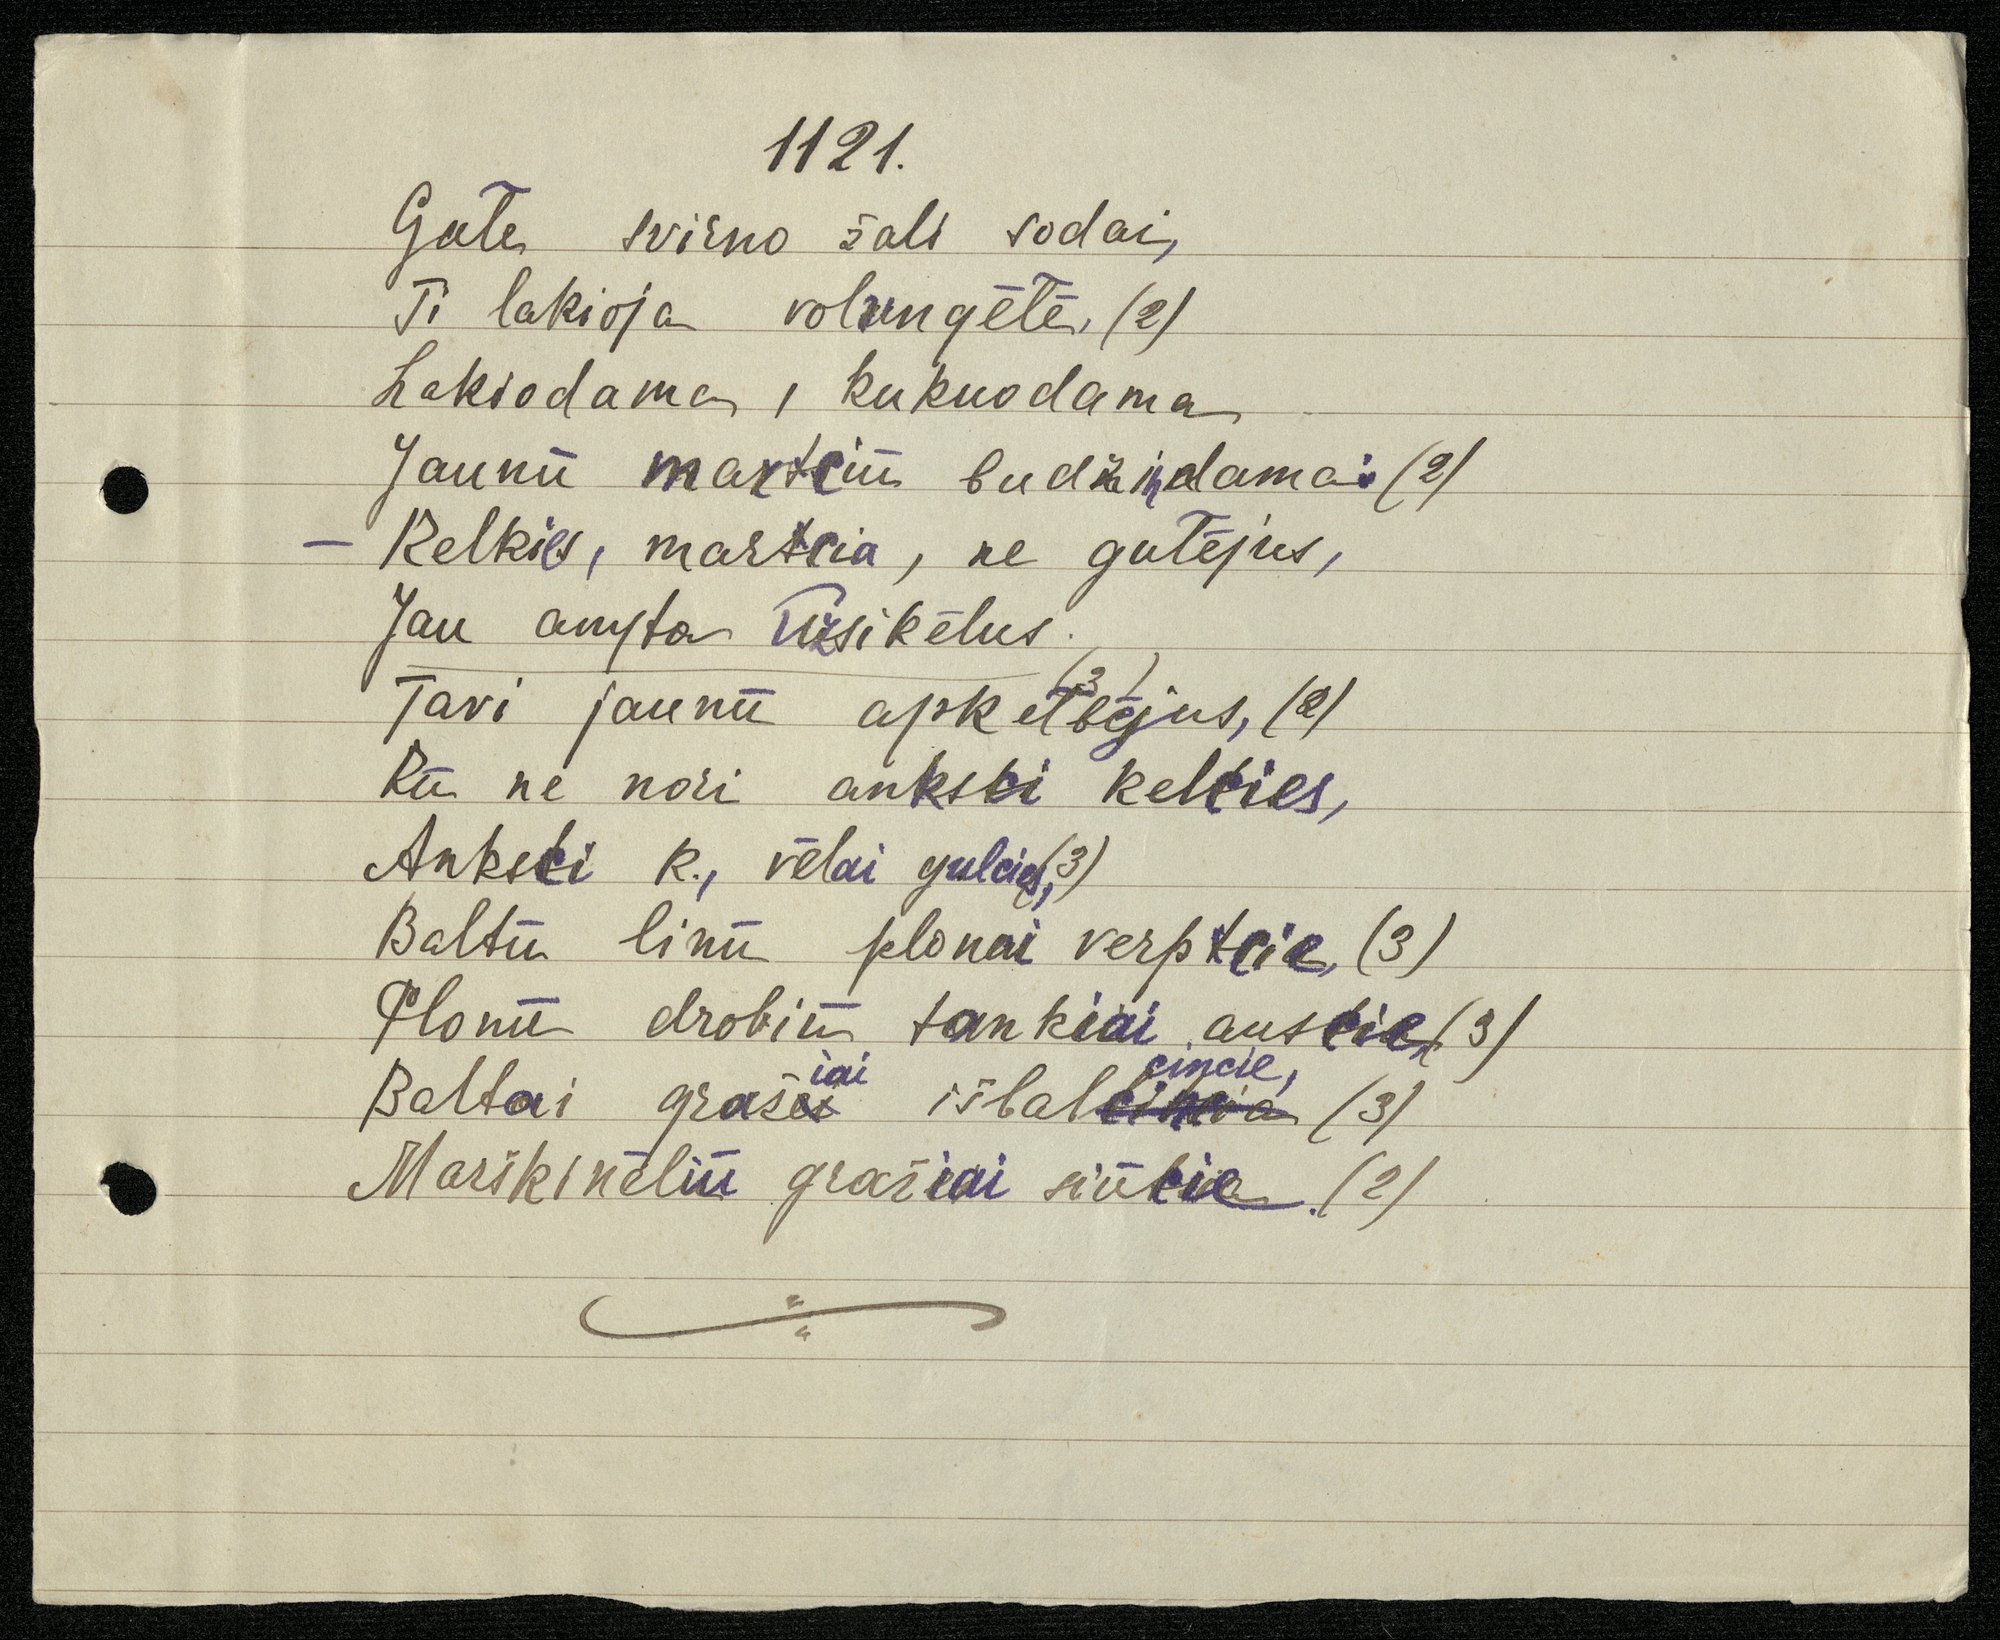 1121.
Gutē svirno šali sodai,
Ti lakioja volungētē, (2)
Lakiodama, kukuodama
Jaunū marciū budzindama (2)
– Kelkies, marcia, ne gutējus,
Jau anyta ūžsikēlus.
Tavi jaunū apkelbējus, (2) (3)
Kū ne nori anksci kelcies,
Anksci k., vēlai gulcies, (3)
Baltū linū plonai verpcie, (3)
Plonū drobiū tankiai auscie, (3)
Baltai gražiai išbalcincie, (3)
Marškinēliū gražiai siūcie. (2)